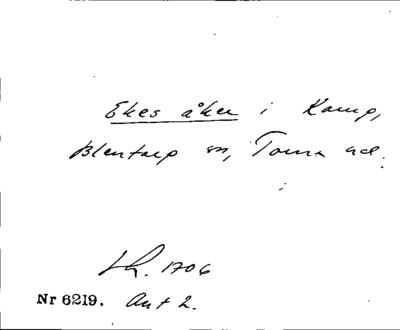 Ekes åker i Karup,
Blentarp sn, Torna hd.
Lh. 1706
Nr 6219. Ant 2.